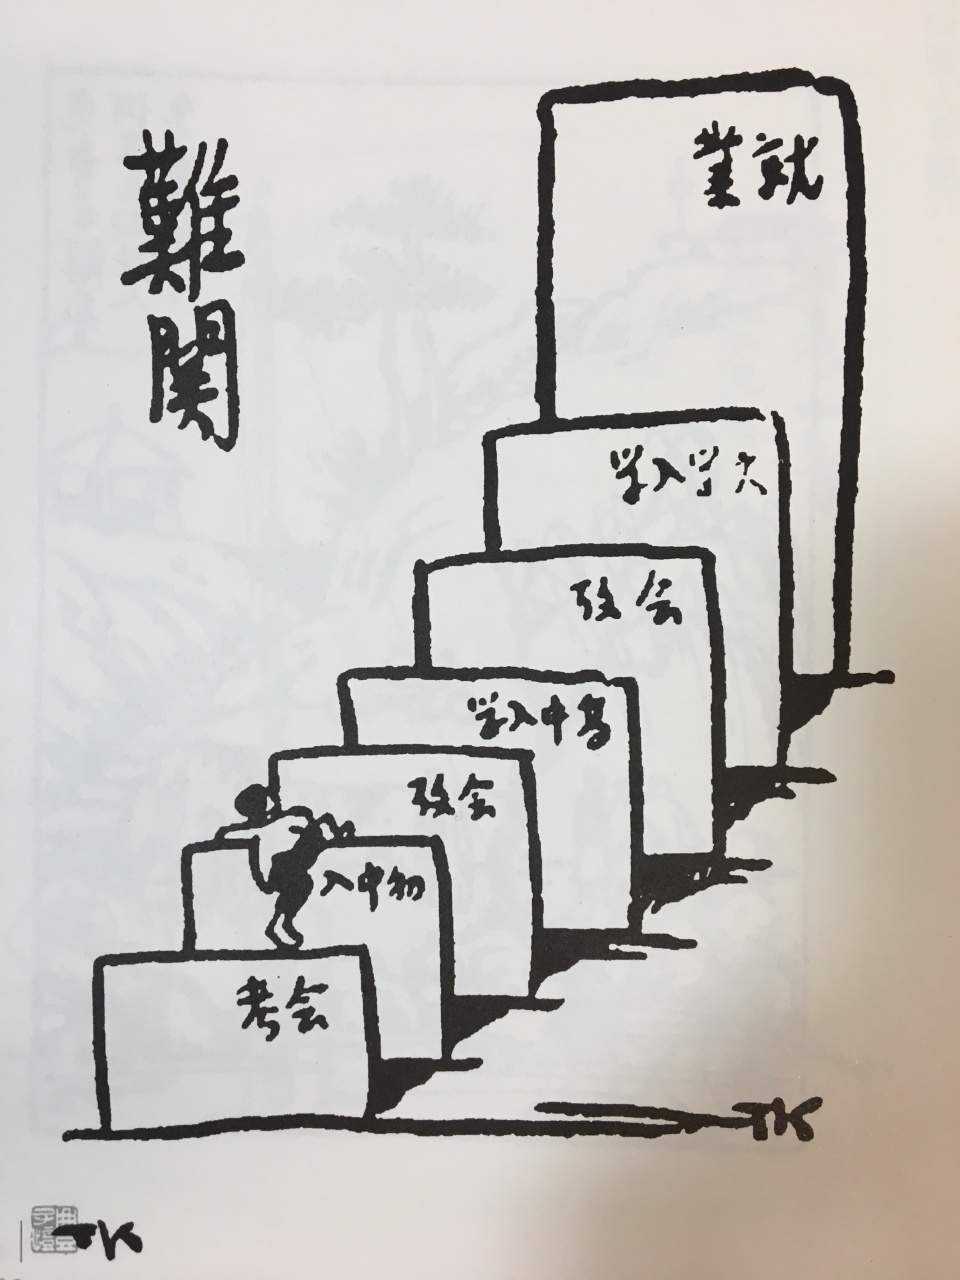 難関
就業
大学入学
会攷
高中入学
会攷
初中入
会考
TK
TK